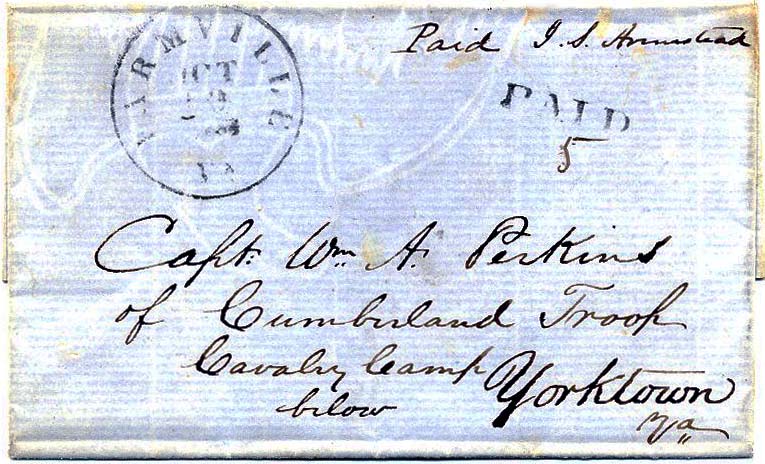 FARMVILLE
OCT
VA
Paid J. S. Armistead
PAID
5
Capt. Wm. A. Perkins
of Cumberland Troop
Cavalry Camp
below Yorktown
Va